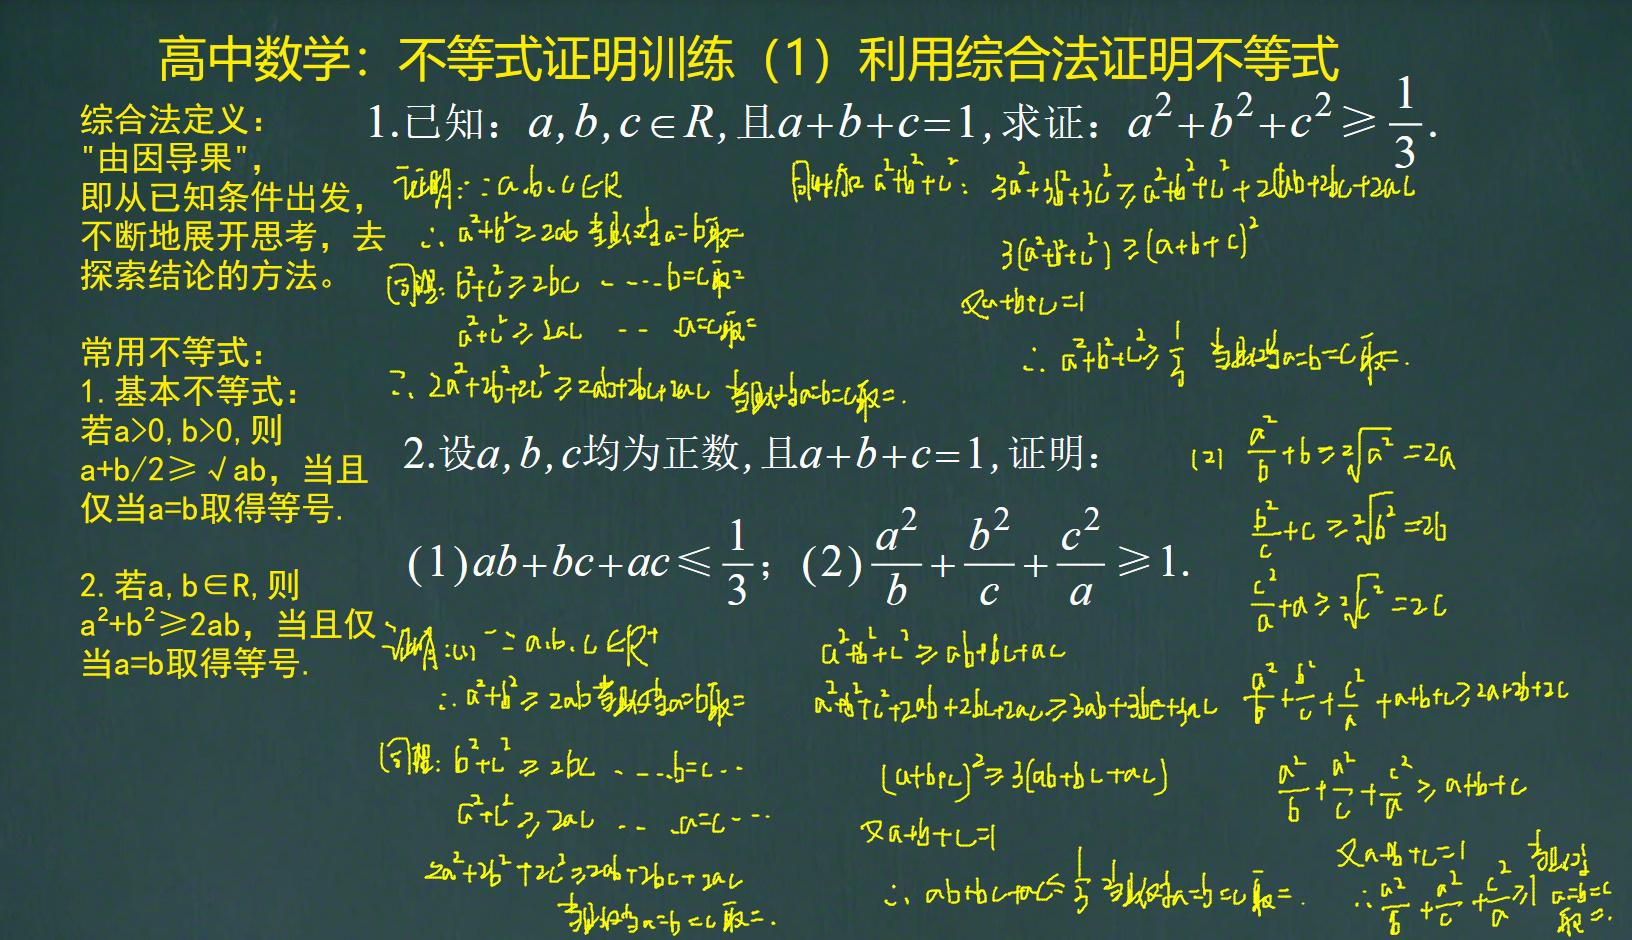 高中数学：不等式证明训练（1）利用综合法证明不等式
综合法定义：
"由因导果"，
即从已知条件出发，
不断地展开思考，去
探索结论的方法。
常用不等式：
1.基本不等式：
若a>0,b>0,则
a+b/2≥√ab，当且
仅当a=b取得等号.
2.若a,b∈R,则
a²+b²≥2ab，当且仅
当a=b取得等号.
1.已知：a,b,c∈R,且a+b+c=1,求证：a²+b²+c²≥1/3.
证明：∵a.b.c∈R
∴a²+b²≥2ab 当且仅当a=b取=
同理：b²+c²≥2bc ---- b=c取=
a²+c²≥2ac -- a=c取=
∴2a²+2b²+2c²≥2ab+2bc+2ac 当且仅当a=b=c取=.
同时加a²+b²+c²：3a²+3b²+3c²≥a²+b²+c²+2ab+2bc+2ac
3(a²+b²+c²)≥(a+b+c)²
又a+b+c=1
∴a²+b²+c²≥1/3 当且仅当a=b=c取=.
2.设a,b,c均为正数,且a+b+c=1,证明：
(1)ab+bc+ac≤1/3；(2)a²/b+b²/c+c²/a≥1.
证明：(1) ∵a.b.c∈R⁺
∴a²+b²≥2ab当且仅当a=b取=
同理：b²+c²≥2bc ---- b=c --
a²+c²≥2ac -- a=c ---
2a²+2b²+2c²≥2ab+2bc+2ac
当且仅当a=b=c取=.
a²+b²+c²≥ab+bc+ac
a²+b²+c²+2ab+2bc+2ac≥3ab+3bc+3ac
(a+b+c)²≥3(ab+bc+ac)
又a+b+c=1
∴ab+bc+ac≤1/3 当且仅当a=b=c取=.
(2) a²/b+b≥2√a²=2a
b²/c+c≥2√b²=2b
c²/a+a≥2√c²=2c
a²/b+b²/c+c²/a+a+b+c≥2a+2b+2c
a²/b+a²/c+c²/a≥a+b+c
又a+b+c=1
∴a²/b+a²/c+c²/a≥1
当且仅当
a=b=c
取=.